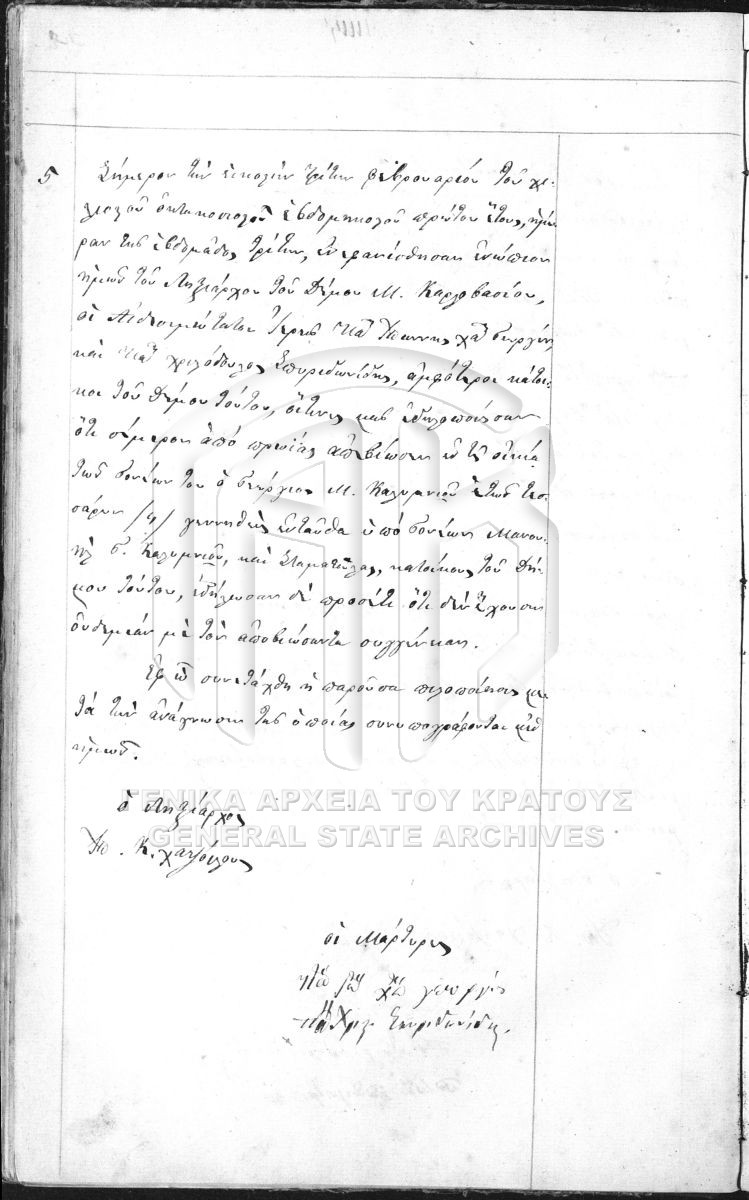 5 Σήμερον τὴν εἰκοστὴν τρίτην φεβρουαρίου τοῦ χι-
λιοστοῦ ὀκτακοσιοστοῦ ἑβδομηκοστοῦ πρώτου ἔτους, ἡμέ-
ραν τῆς ἑβδομάδος τρίτην, ἐνεφανίσθησαν ἐνώπιον
ἡμῶν τοῦ Ληξιάρχου τοῦ Δήμου Μ. Καρλοβασίου,
οἱ Αἰδεσιμώτατοι Ἱερεῖς Πα Ἰωάννης χα Γεωργίου
καὶ Πα χριστόδουλος Σπυριδωνίδης, ἀμφότεροι κάτοι-
κοι τοῦ Δήμου τούτου, οἵτινες μᾶς ἐδηλοποίησαν
ὅτι σήμερον ἀπὸ πρωίας ἀπεβίωσεν ἐν τῇ οἰκίᾳ
τῶν γονέων του ὁ Γεώργιος Μ. Καλυμνιοῦ ἐτῶν τεσ-
σάρων /4/ γεννηθεὶς ἐνταῦθα ὑπὸ γονέων Μανου-
ὴλ Γ. Καλυμνιοῦ, καὶ Σταματούλας, κατοίκους τοῦ Δή-
μου τούτου, ἐδήλωσαν δὲ προσέτι ὅτι δὲν ἔχουσιν
οὐδεμίαν μὲ τὸν ἀποβιώσαντα συγγένειαν.
Ἐφ ᾧ συνετάχθη ἡ παροῦσα πιστοποίησις με-
τὰ τὴν ἀνάγνωσιν τῆς ὁποίας συνυπογράφονται μεθ
ἡμῶν.
ὁ Ληξίαρχος
Κ. χατζόγλους
οἱ Μάρτυρες
χα γεωργίου
Πα Χρισ. Σπυριδωνίδης.
ΓΕΝΙΚΑ ΑΡΧΕΙΑ ΤΟΥ ΚΡΑΤΟΥΣ
GENERAL STATE ARCHIVES